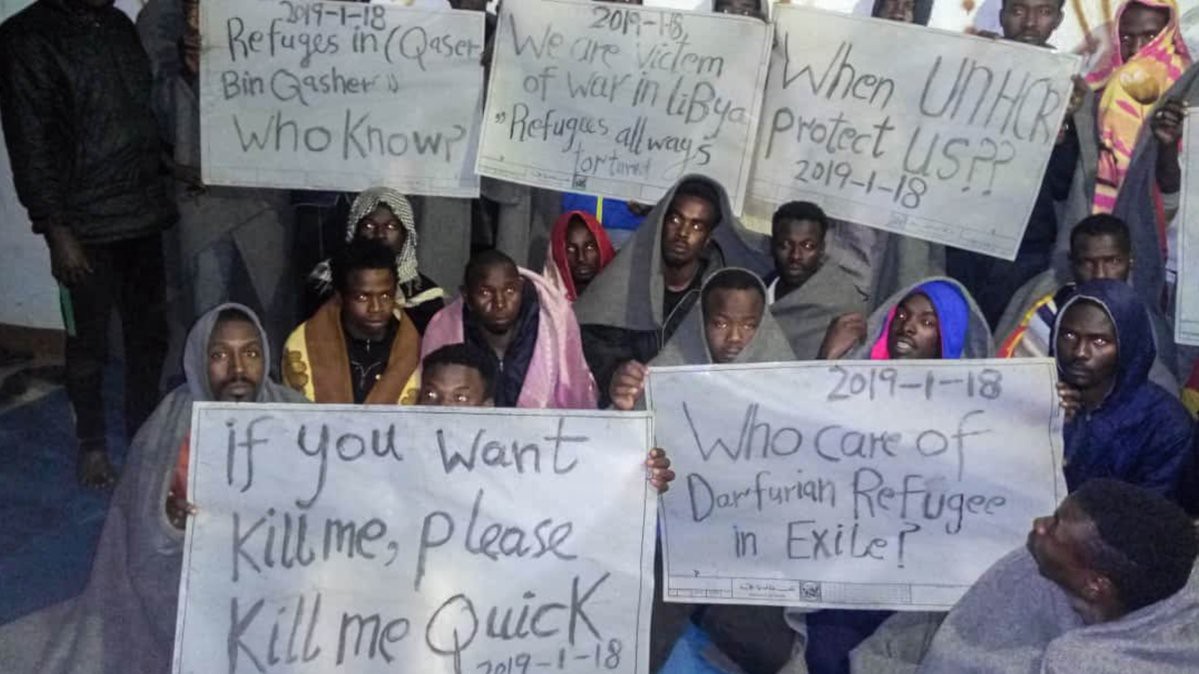 2019-1-18
Refuges in (Qaser
Bin Qasher"
Who Know?
2019-1-18,
We are victem
of war in LiBya
"Refugees all ways
tortured
When UNHCR
protect US??
2019-1-18
if you want
Kill me, please
Kill me Quick
2019-1-18
2019-1-18
Who care of
Darfurian Refugee
in Exile?